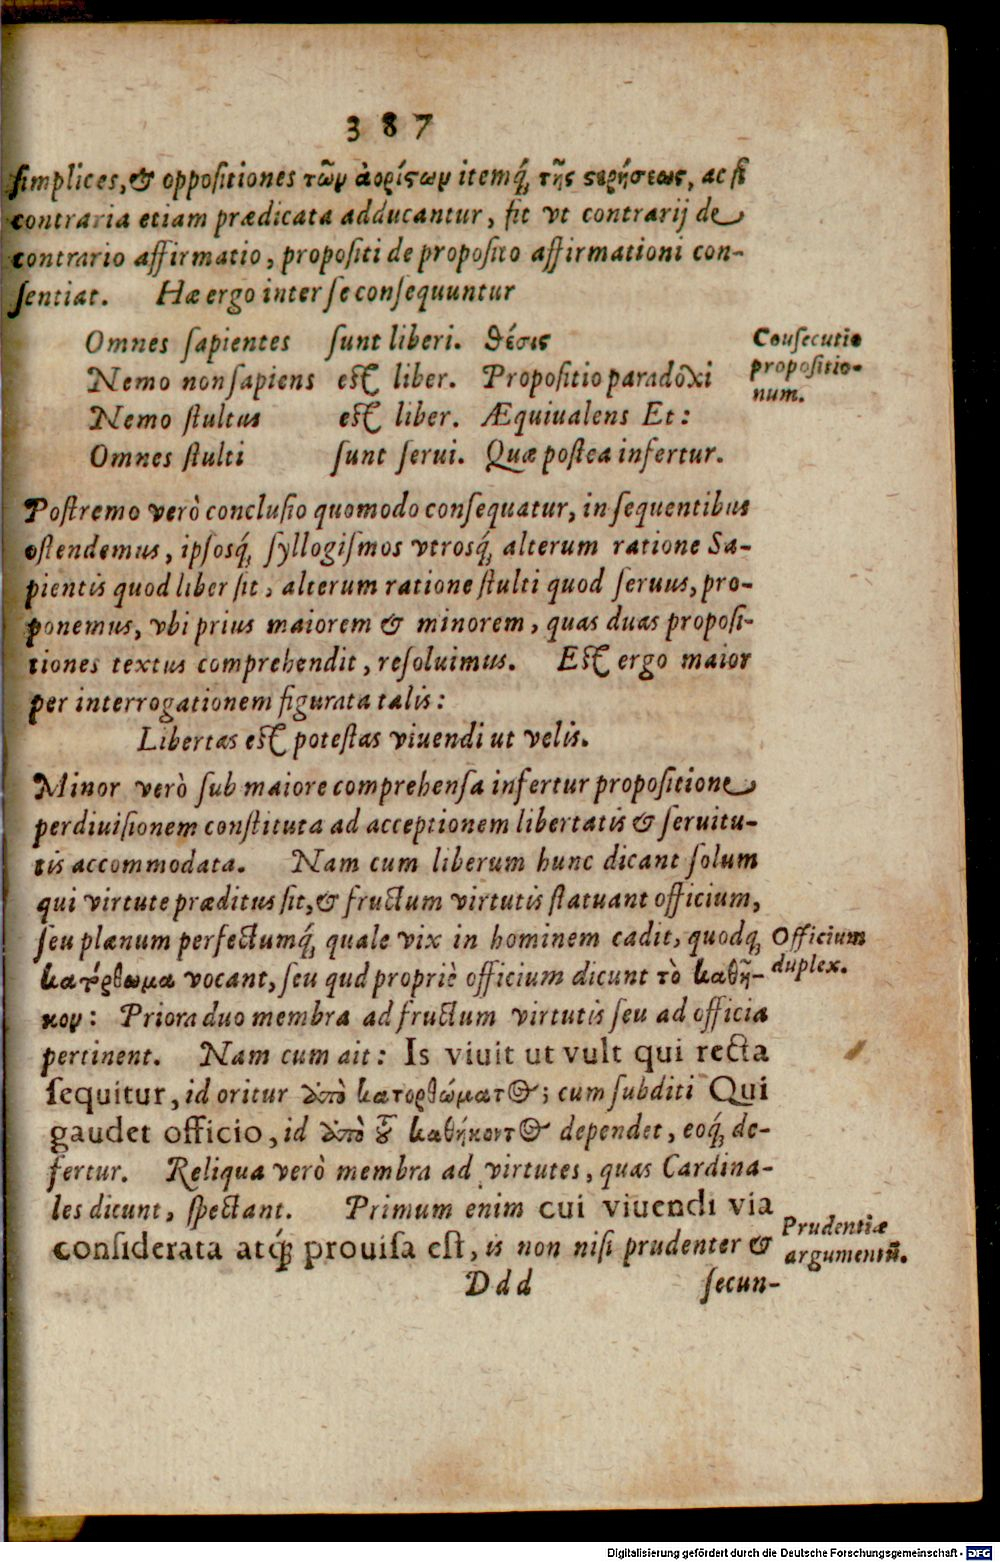 387
ſimplices, & oppoſitiones τῶν ἀορίςων itemq́; τῆς ςερήσεως, ac ſi
contraria etiam prædicata adducantur, fit vt contrarij de
contrario affirmatio, propoſiti de propoſito affirmationi con-
ſentiat. Hæ ergo inter ſe conſequuntur
Omnes ſapientes ſunt liberi. θέσις
Nemo non ſapiens eſt liber. Propoſitio paradoxi
Nemo ſtultus eſt liber. Æquiualens Et:
Omnes ſtulti ſunt ſerui. Quæ poſtea infertur.
Conſecutio
propoſitio-
num.
Poſtremo verò concluſio quomodo conſequatur, in ſequentibus
oſtendemus, ipſosq́; ſyllogiſmos vtrosq́; alterum ratione Sa-
pientis quod liber ſit, alterum ratione ſtulti quod ſeruus, pro-
ponemus, vbi prius maiorem & minorem, quas duas propoſi-
tiones textus comprehendit, reſoluimus. Eſt ergo maior
per interrogationem figurata talis:
Libertas eſt poteſtas viuendi ut velis.
Minor verò ſub maiore comprehenſa infertur propoſitione
per diuiſionem conſtituta ad acceptionem libertatis & ſeruitu-
tis accommodata. Nam cum liberum hunc dicant ſolum
qui virtute præditus ſit, & fructum virtutis ſtatuant officium,
ſeu plænum perfectumq́; quale vix in hominem cadit, quodq;
κατόρθωμα vocant, ſeu qud propriè officium dicunt τὸ καθῆ-
κον: Priora duo membra ad fructum virtutis ſeu ad officia
Officium
duplex.
pertinent. Nam cum ait: Is viuit ut vult qui recta
ſequitur, id oritur ἀπὸ κατορθώματος; cum ſubditi Qui
gaudet officio, id ἀπὸ ȣ͂ καθήκοντος dependet, eoq́; de-
fertur. Reliqua verò membra ad virtutes, quas Cardina-
les dicunt, ſpectant. Primum enim cui viuendi via
conſiderata atq́; prouiſa eſt, is non niſi prudenter &
Prudentiæ
argumentũ.
Ddd ſecun-
Digitalisierung gefördert durch die Deutsche Forschungsgemeinschaft - DFG